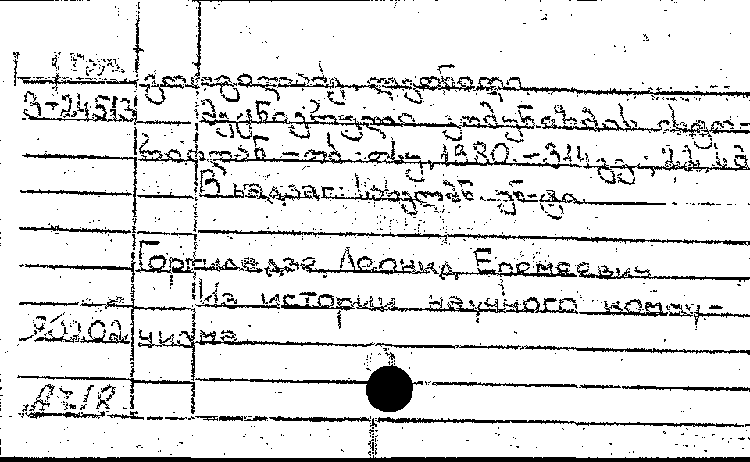 Груз
გორგილაძე ლეონიდ
3-24513 მეცნიერული კომუნიზმის ისტო-
რიიდან - თბ.: თსუ, 1980. - 314 გვ.; 22 სმ
В надзаг.: სახელმწ. უნ-ტი
Горгиладзе, Леонид Еремеевич
Из истории научного комму-
80202 низма